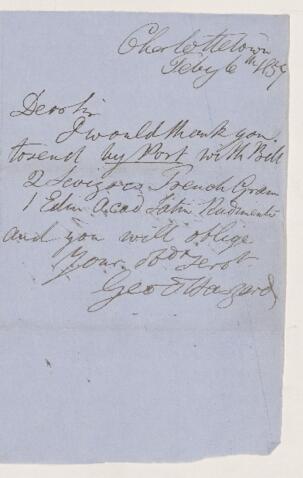 Charlottetown
Feby 6th 1857
Dear Sir
I would thank you
to send by Post with Bill
2 Levizacs French Gram
1 Edin Acad Latin Rudiments
and you will oblige
Your obdt Servt
Geo T Haszard